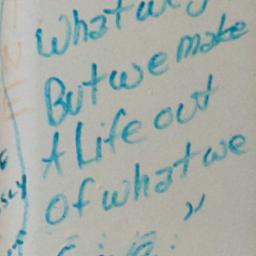 What we
But we make
A Life out
Of what we
"